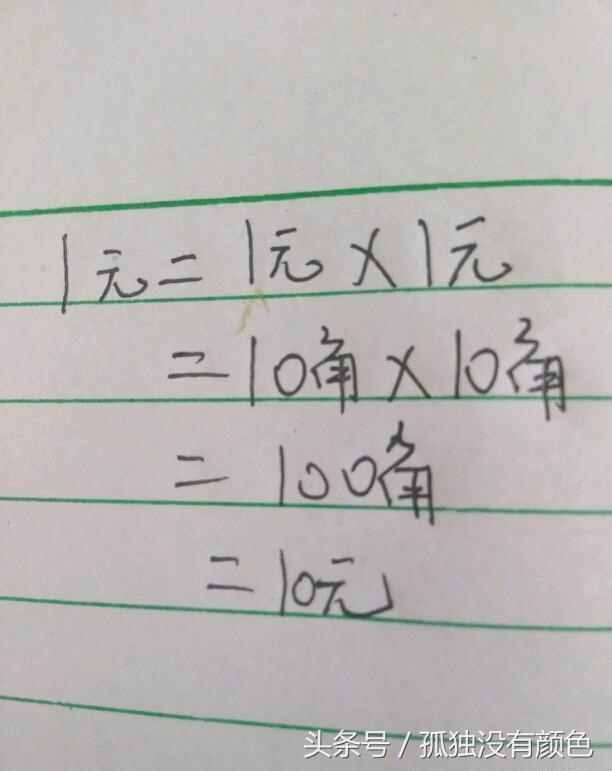 1元=1元×1元
=10角×10角
=100角
=10元
头条号/孤独没有颜色